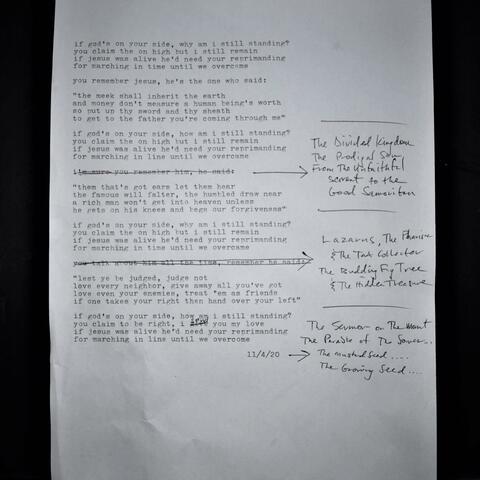 if god's on your side, why am i still standing?
you claim the on high but i still remain
if jesus was alive he'd need your reprimanding
for marching in time until we overcome
you remember jesus, he's the one who said:
"the meek shall inherit the earth
and money don't measure a human being's worth
so put up thy sword and thy sheath
to get to the father you're coming through me"
if god's on your side, how am i still standing?
you claim the on high but i still remain
if jesus was alive he'd need your reprimanding
for marching in line until we overcome
i'm sure you remember him, he said:
"them that's got ears let them hear
the famous will falter, the humbled draw near
a rich man won't get into heaven unless
he gets on his knees and begs our forgiveness"
if god's on your side, why am i still standing?
you claim the on high but i still remain
if jesus was alive he'd need your reprimanding
for marching in time until we overcome
you talk about him all the time, remember he said:
"lest ye be judged, judge not
love every neighbor, give away all you've got
love even your enemies, treat 'em as friends
if one takes your right then hand over your left"
if god's on your side, how am i still standing?
you claim to be right, i you my love
if jesus was alive he'd need your reprimanding
for marching in line until we overcome
11/4/20
The Divided Kingdom
The Prodigal Son
From The Unfaithful
Servant to the
Good Samaritan
Lazarus, The Pharisee
& The Tax Collector
The Budding Fig Tree
& The Hidden Treasure
The Sermon on The Mount
The Parable of The Sower...
The mustard seed....
The Growing Seed....